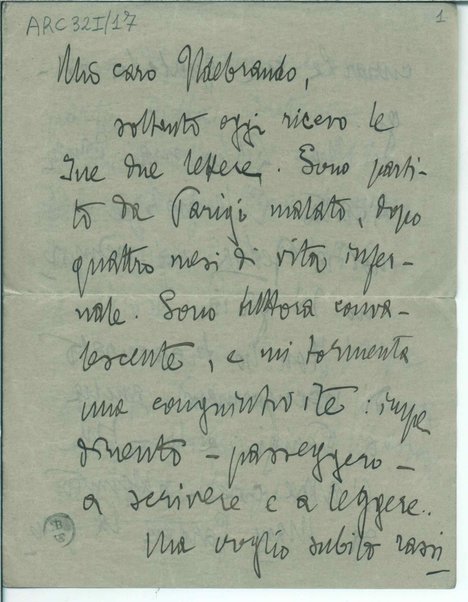 ARC32I/17
1
Mio caro Ildebrando,
soltanto oggi ricevo le
Tue due lettere. Sono parti-
to da Parigi malato, dopo
quattro mesi di vita infer-
nale. Sono tuttora conva-
lescente, e mi tormenta
una congiuntivite: impe
dimento – passeggero –
a scrivere e a leggere.
Ma voglio subito rassi